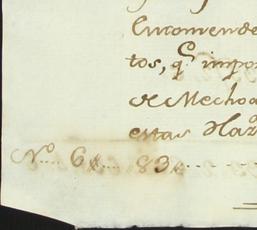 Encomende
tos, q.e impor
de Mechoa
estas Haz
N.o .... 6 .... 83 ....